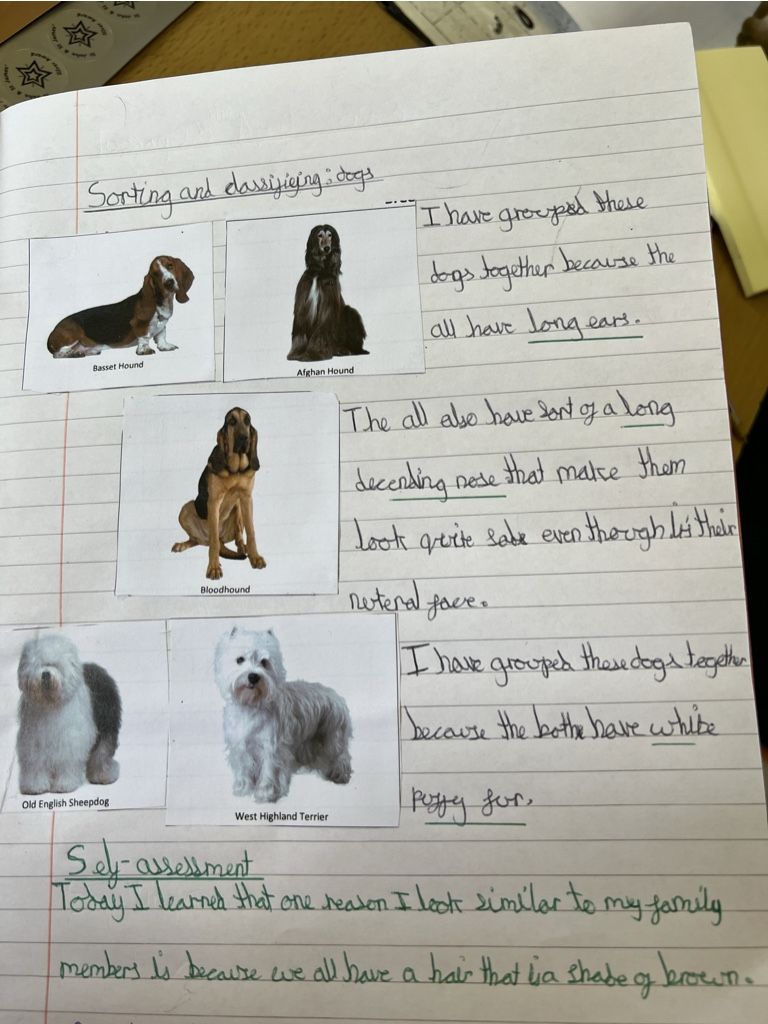 Sorting and classifieing: dogs
I have grouped these
dogs together because the
all have long ears.
Basset Hound
Afghan Hound
The all also have sort of a long
decending nose that make them
look quite sabe even though is their
Bloodhound
neteral face.
I have grouped these dogs together
because the bothe have white
puffy fur.
Old English Sheepdog
West Highland Terrier
Self-assessment
Today I learned that one reason I look similar to my family
members is because we all have a hair that is a shabe of brown.